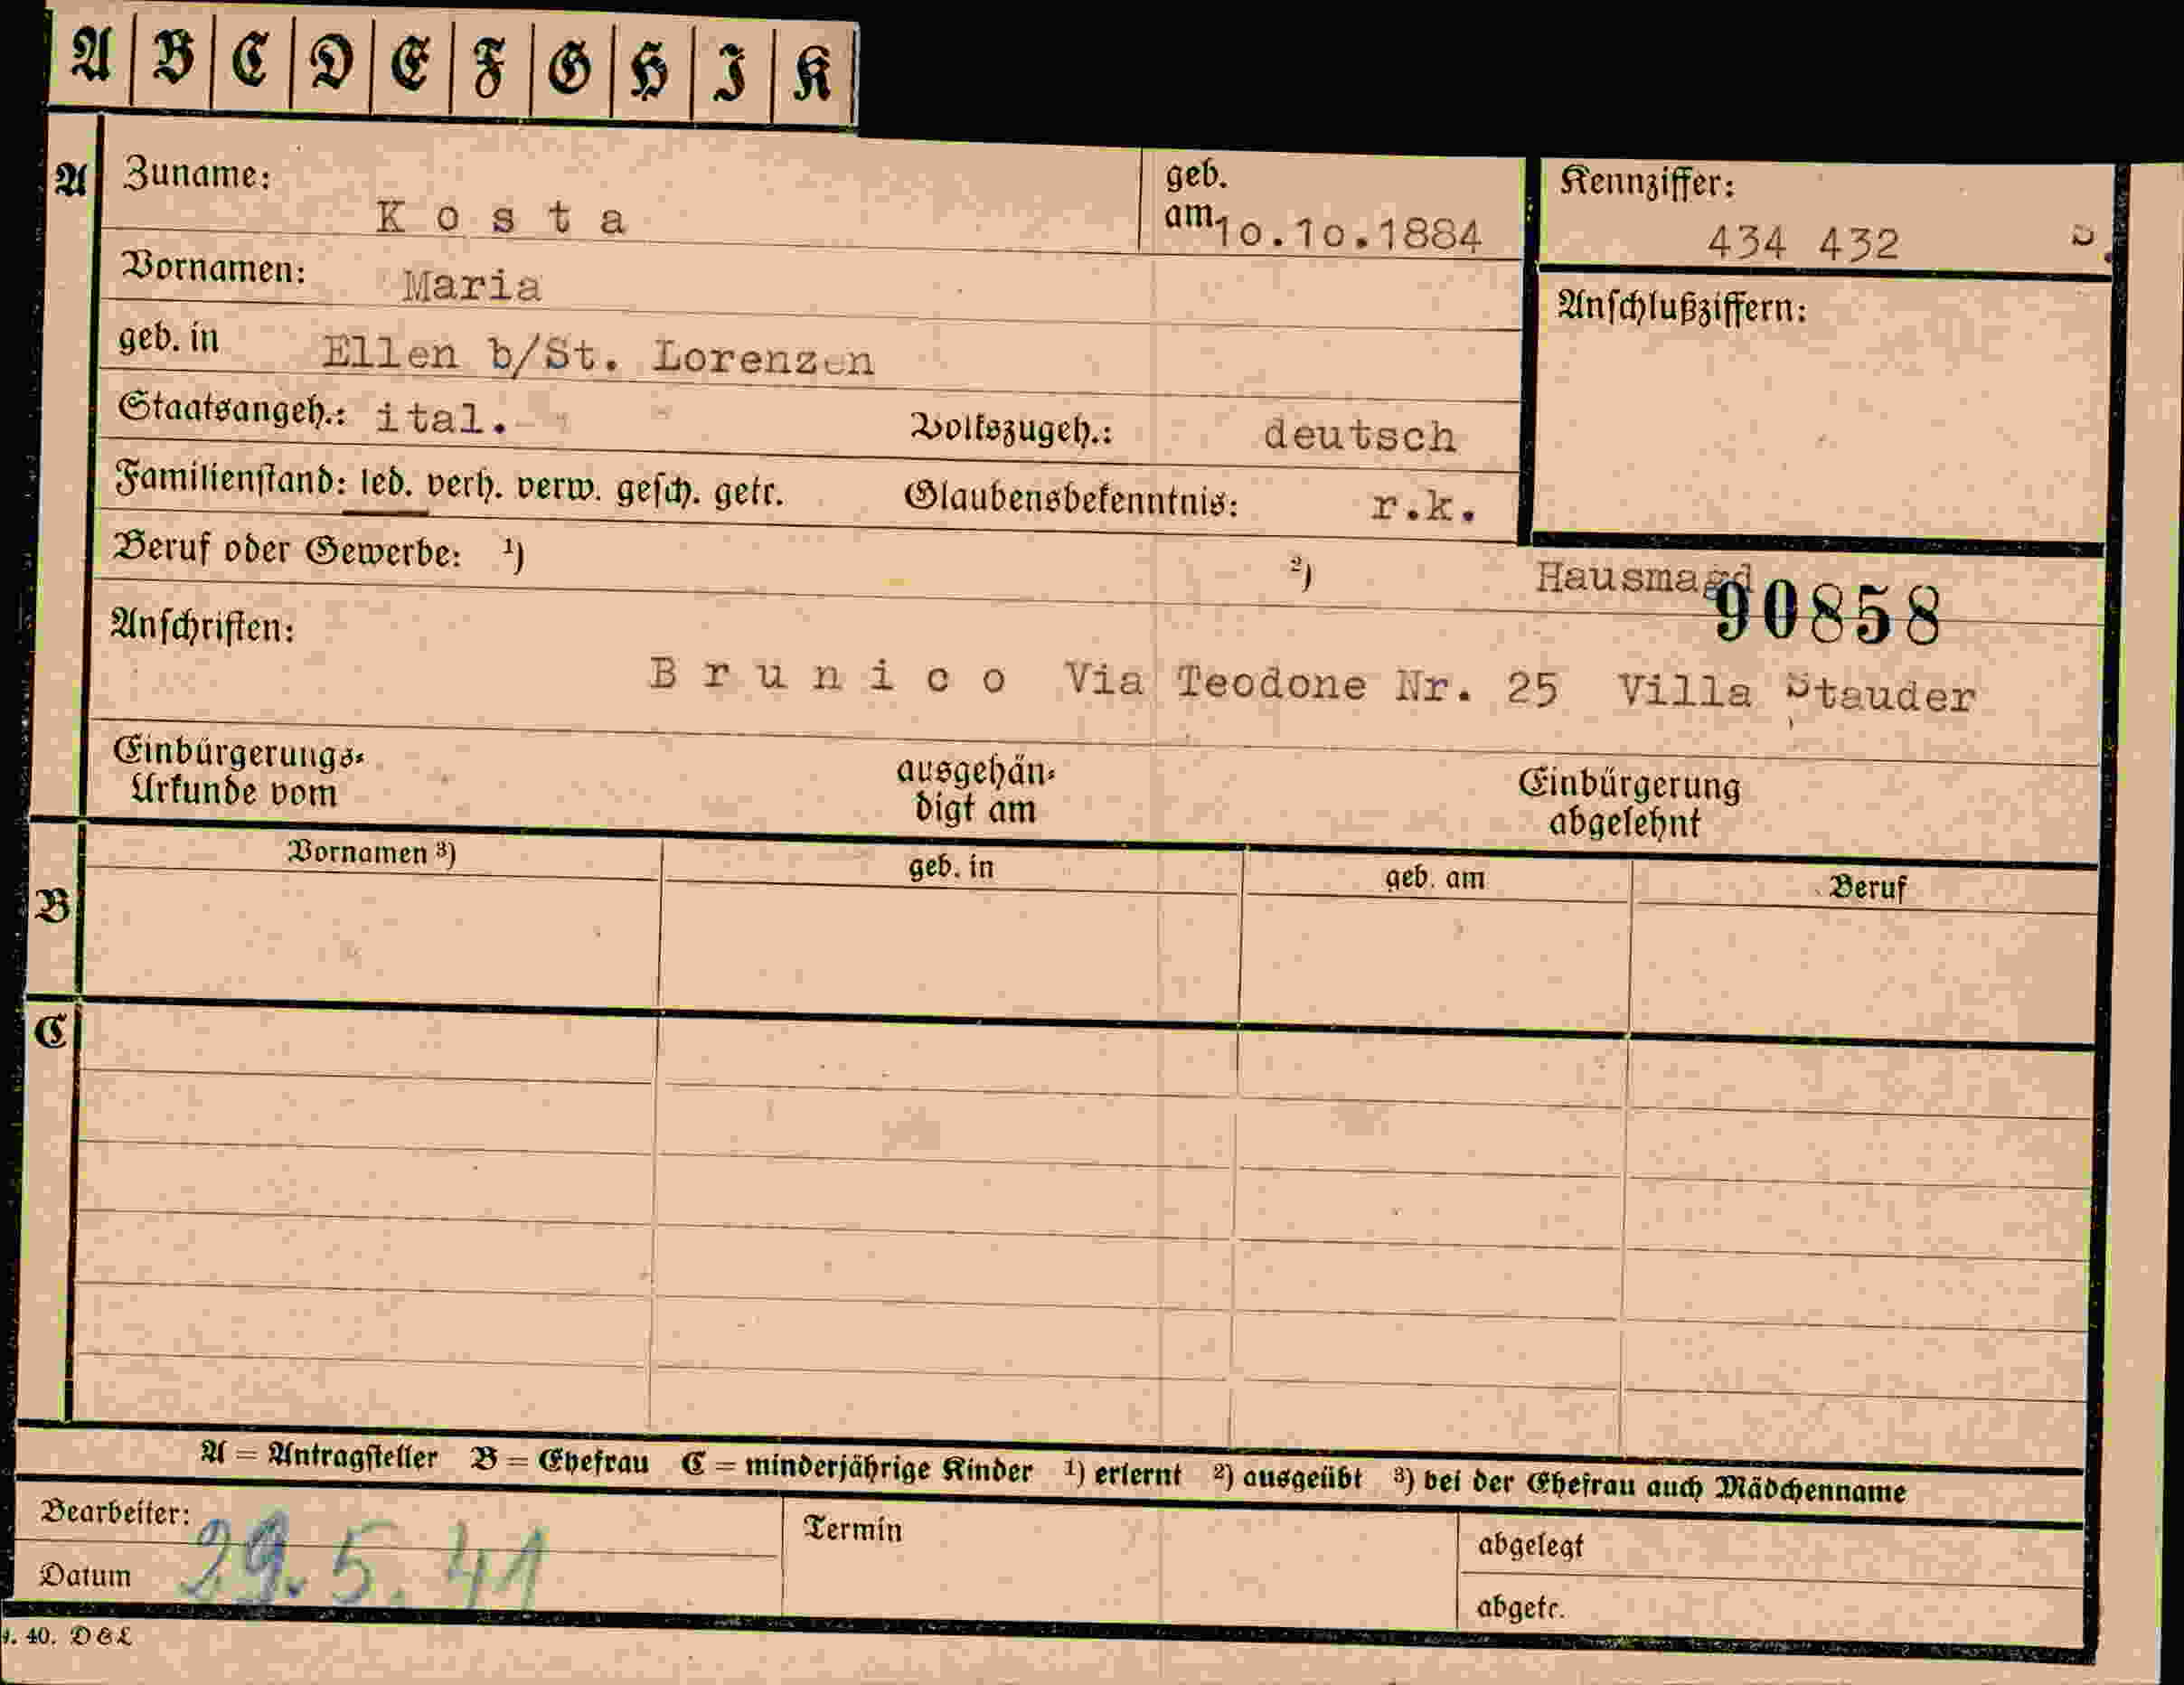 A B C D E F G H I K
A Zuname: Kosta geb. am 10.10.1884 Kennziffer: 434 432
Vornamen: Maria
Anschlußziffern:
geb. in Ellen b/St. Lorenzen
Staatsangeh.: ital. Volkszugeh.: deutsch
Familienstand: led. verh. verw. gesch. getr. Glaubensbekenntnis: r.k.
Beruf oder Gewerbe: ¹) ²) Hausmagd
90858
Anschriften:
Brunico Via Teodone Nr. 25 Villa Stauder
Einbürgerungs-Urkunde vom ausgehändigt am Einbürgerung abgelehnt
B Vornamen ³) geb. in geb. am Beruf
C
A = Antragsteller B = Ehefrau C = minderjährige Kinder ¹) erlernt ²) ausgeübt ³) bei der Ehefrau auch Mädchenname
Bearbeiter: Termin abgelegt
Datum 29.5.41 abgetr.
40. D&L